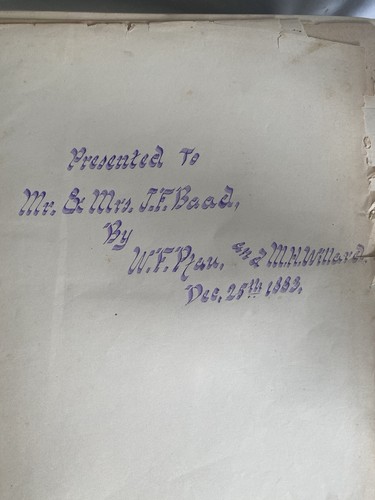 Presented To
Mr. & Mrs. J.F. Baad,
By
W.F. and M.H. Willard.
Dec, 25th 1883,